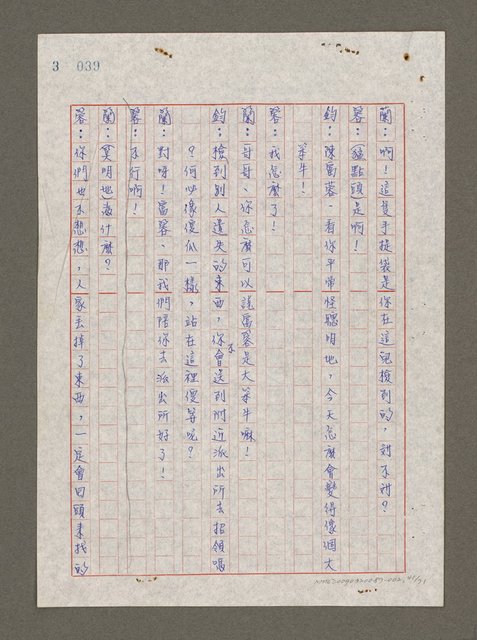 3 039
蘭：啊！這隻手提袋是你在這兒撿到的，對不對？
蓉：（猛點頭）是啊！
鈞：陳富蓉，看你平常怪聰明地，今天怎麼會變得像個大
笨牛！
蓉：我怎麼了！
蘭：哥哥，你怎麼可以說富蓉是大笨牛嘛！
鈞：撿到別人遺失的東西，你不會送到附近派出所去招領嗎
？何必像傻瓜一樣，站在這裡傻等呢？
蘭：對呀！富蓉，那我們陪你去派出所好了！
蓉：不行啊！
蘭：（莫明地）為什麼？
蓉：你們也不想想，人家丟掉了東西，一定會回頭來找的